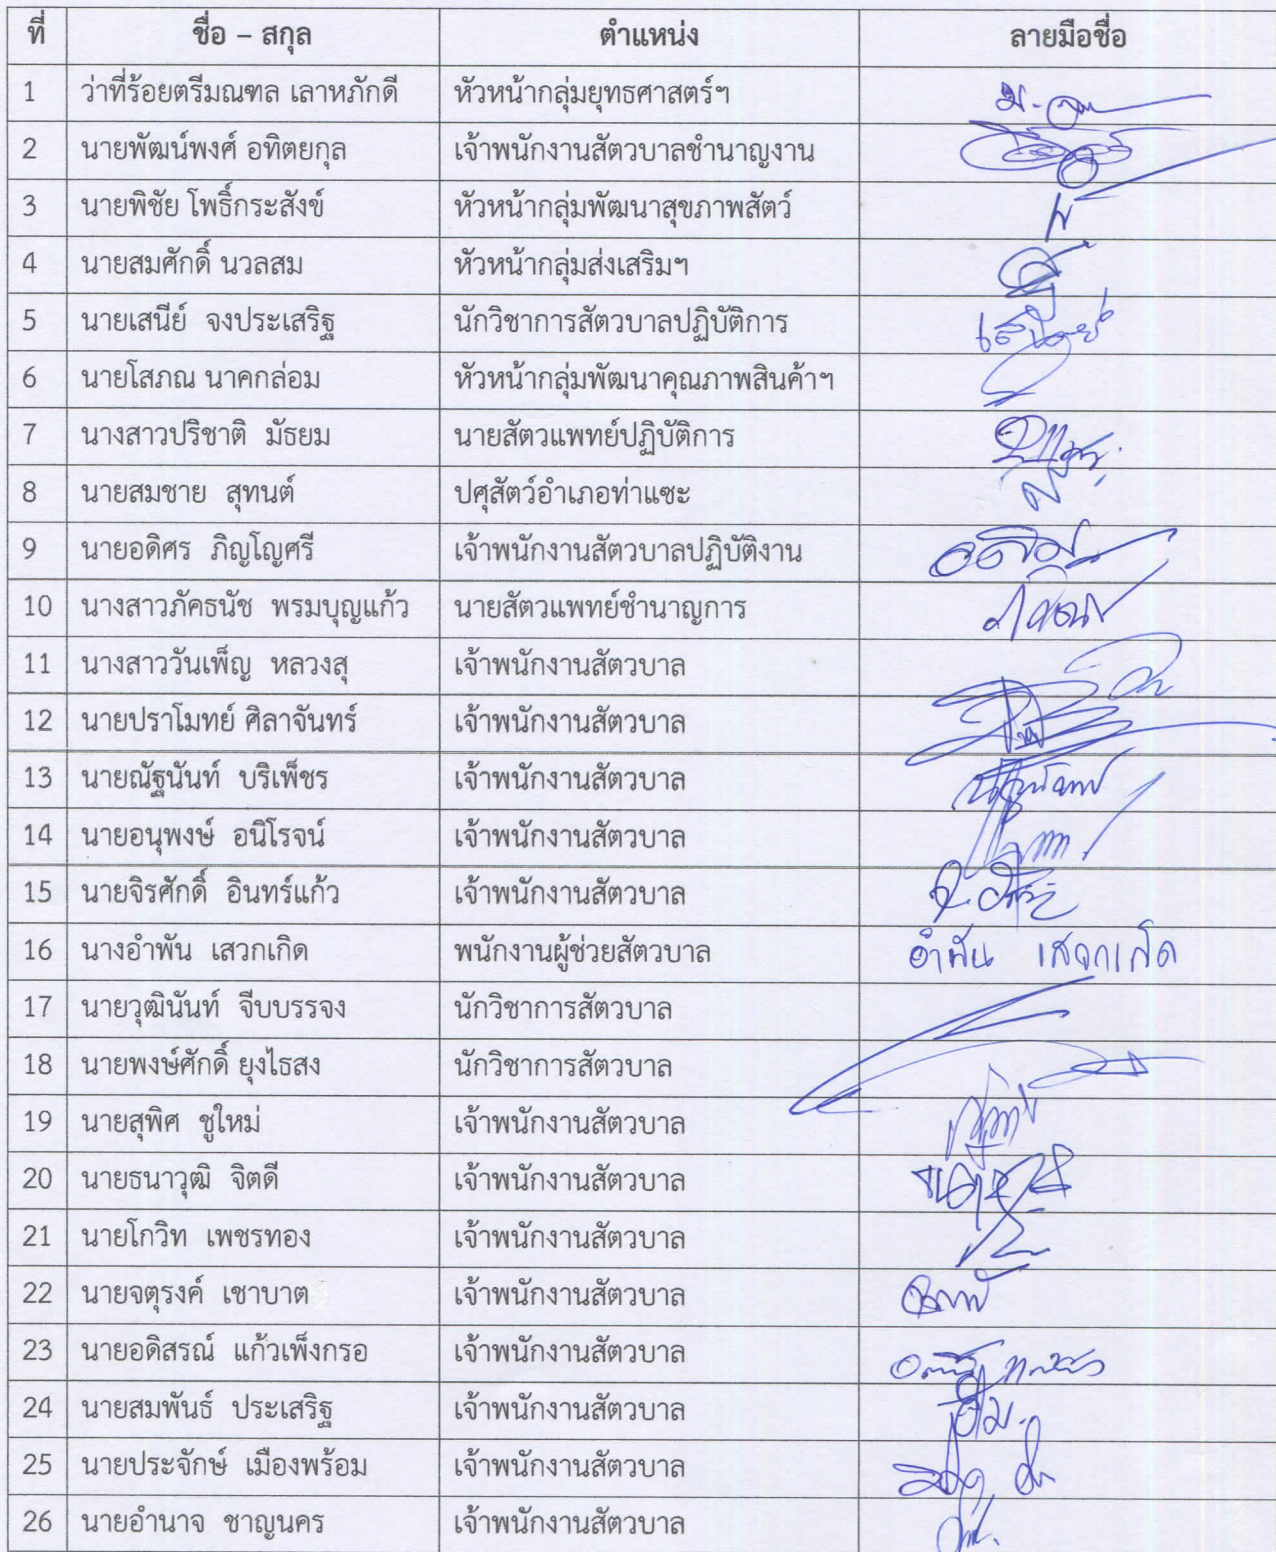 ที่ ชื่อ – สกุล ตำแหน่ง ลายมือชื่อ
1 ว่าที่ร้อยตรีมณฑล เลาหภักดี หัวหน้ากลุ่มยุทธศาสตร์ฯ
2 นายพัฒน์พงศ์ อทิตยกุล เจ้าพนักงานสัตวบาลชำนาญงาน
3 นายพิชัย โพธิ์กระสังข์ หัวหน้ากลุ่มพัฒนาสุขภาพสัตว์
4 นายสมศักดิ์ นวลสม หัวหน้ากลุ่มส่งเสริมฯ
5 นายเสนีย์ จงประเสริฐ นักวิชาการสัตวบาลปฏิบัติการ เสนีย์
6 นายโสภณ นาคกล่อม หัวหน้ากลุ่มพัฒนาคุณภาพสินค้าฯ
7 นางสาวปริชาติ มัธยม นายสัตวแพทย์ปฏิบัติการ
8 นายสมชาย สุทนต์ ปศุสัตว์อำเภอท่าแซะ
9 นายอดิศร ภิญโญศรี เจ้าพนักงานสัตวบาลปฏิบัติงาน
10 นางสาวภัคธนัช พรมบุญแก้ว นายสัตวแพทย์ชำนาญการ
11 นางสาววันเพ็ญ หลวงสุ เจ้าพนักงานสัตวบาล
12 นายปราโมทย์ ศิลาจันทร์ เจ้าพนักงานสัตวบาล
13 นายณัฐนันท์ บริเพ็ชร เจ้าพนักงานสัตวบาล
14 นายอนุพงษ์ อนิโรจน์ เจ้าพนักงานสัตวบาล
15 นายจิรศักดิ์ อินทร์แก้ว เจ้าพนักงานสัตวบาล
16 นางอำพัน เสวกเกิด พนักงานผู้ช่วยสัตวบาล อำพัน เสวกเกิด
17 นายวุฒินันท์ จีบบรรจง นักวิชาการสัตวบาล
18 นายพงษ์ศักดิ์ ยุงไธสง นักวิชาการสัตวบาล
19 นายสุพิศ ชูใหม่ เจ้าพนักงานสัตวบาล
20 นายธนาวุฒิ จิตดี เจ้าพนักงานสัตวบาล
21 นายโกวิท เพชรทอง เจ้าพนักงานสัตวบาล
22 นายจตุรงค์ เชาบาต เจ้าพนักงานสัตวบาล
23 นายอดิสรณ์ แก้วเพ็งกรอ เจ้าพนักงานสัตวบาล
24 นายสมพันธ์ ประเสริฐ เจ้าพนักงานสัตวบาล
25 นายประจักษ์ เมืองพร้อม เจ้าพนักงานสัตวบาล
26 นายอำนาจ ชาญนคร เจ้าพนักงานสัตวบาล